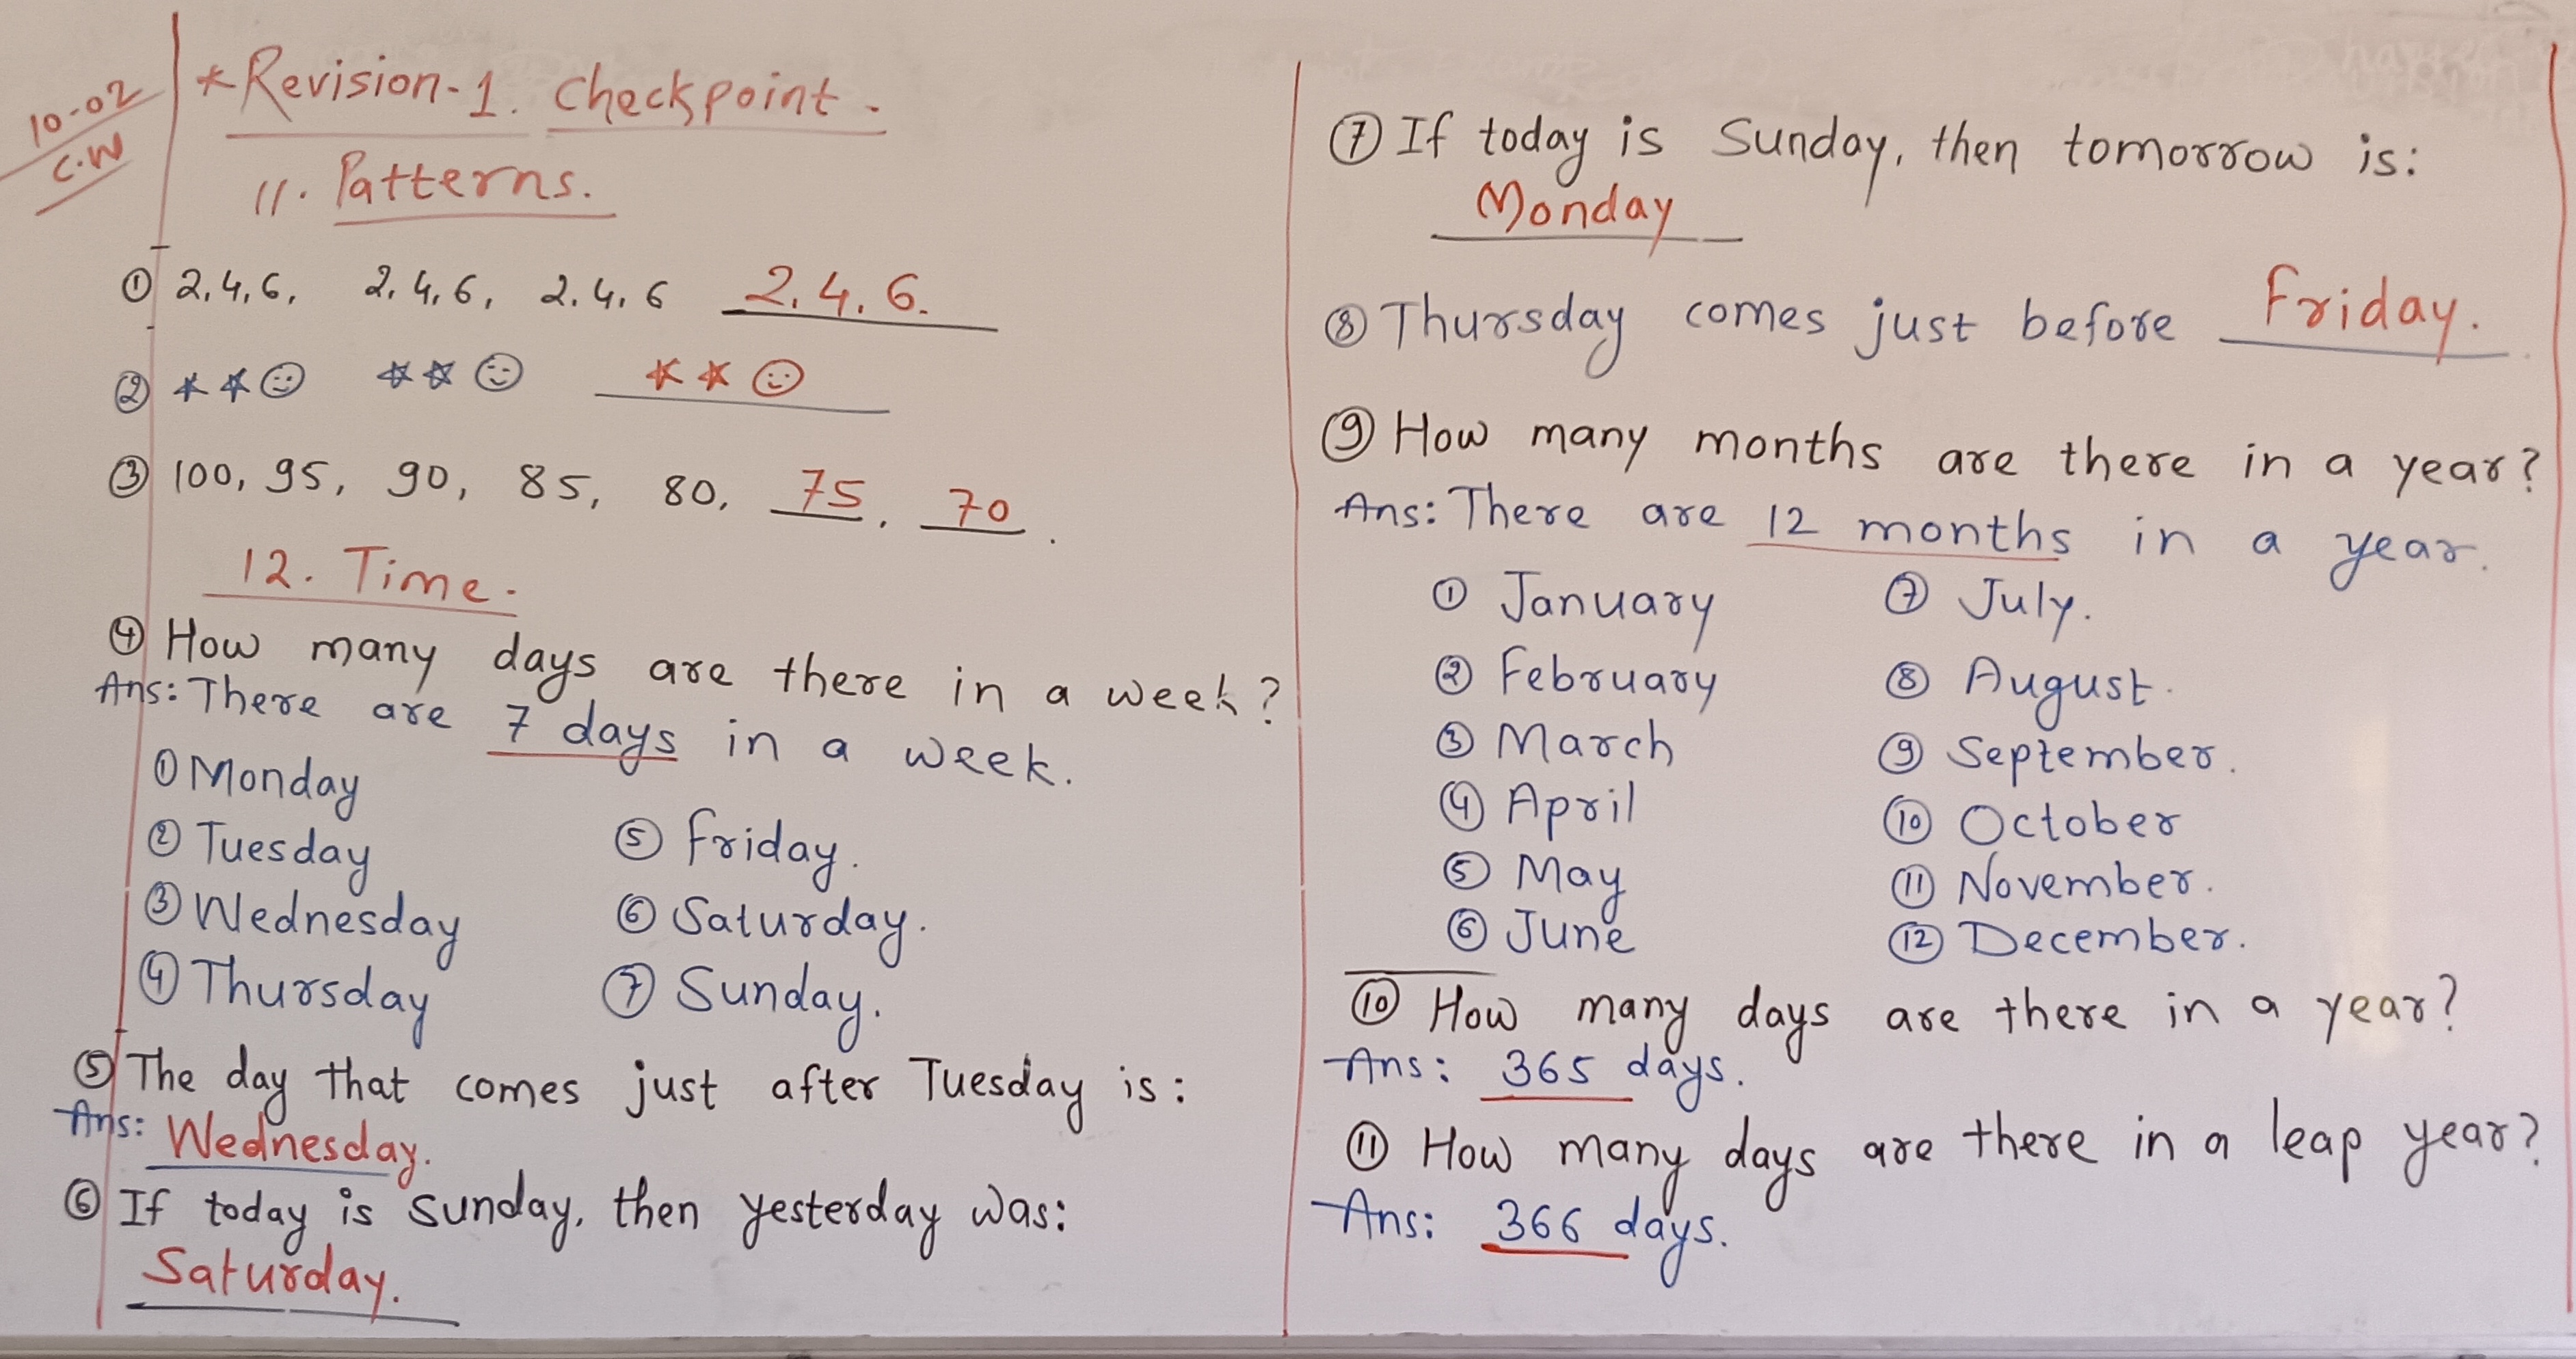 10-02
C.W
*Revision-1. Checkpoint.
11. Patterns.
① 2,4,6, 2,4,6, 2,4,6 2,4,6.
② ★★☺ ★★☺ ★★☺
③ 100, 95, 90, 85, 80, 75, 70.
12. Time.
④ How many days are there in a week?
Ans: There are 7 days in a week.
① Monday
② Tuesday ⑤ Friday.
③ Wednesday ⑥ Saturday.
④ Thursday ⑦ Sunday.
⑤ The day that comes just after Tuesday is:
Ans: Wednesday.
⑥ If today is Sunday, then yesterday was:
Saturday.
⑦ If today is Sunday, then tomorrow is:
Monday
⑧ Thursday comes just before Friday.
⑨ How many months are there in a year?
Ans: There are 12 months in a year.
① January ⑦ July.
② February ⑧ August.
③ March ⑨ September.
④ April ⑩ October
⑤ May ⑪ November.
⑥ June ⑫ December.
⑩ How many days are there in a year?
Ans: 365 days.
⑪ How many days are there in a leap year?
Ans: 366 days.